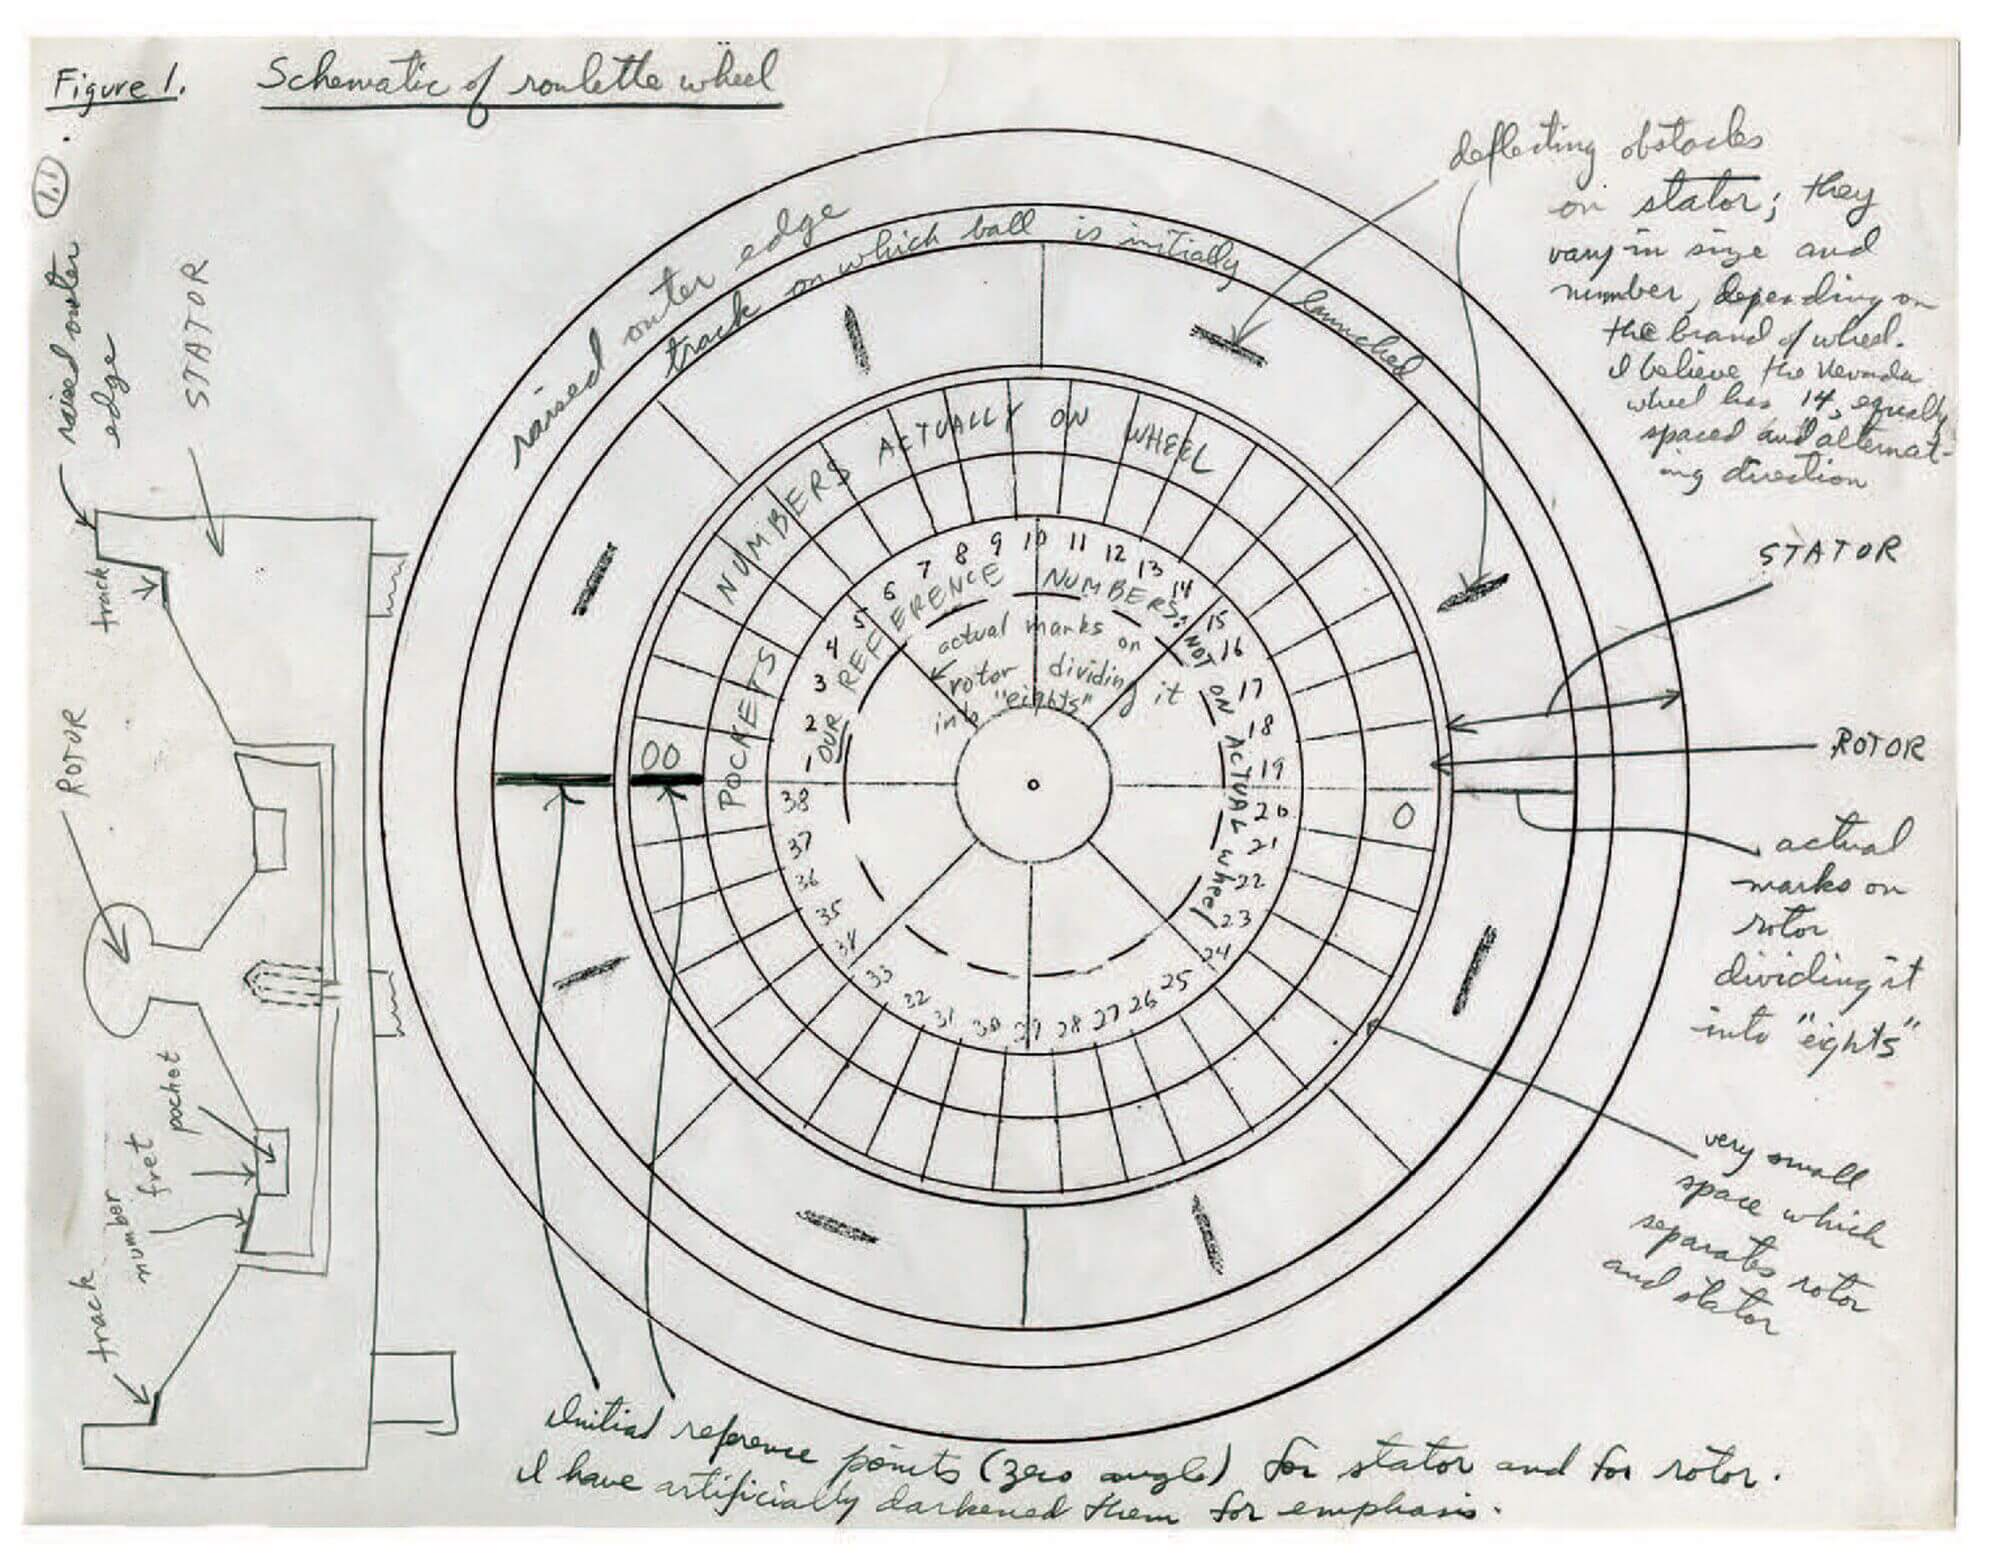 Figure 1. Schematic of roulette wheel
1.1
raised outer
edge
STATOR
track
ROTOR
pocket
fret
number
track
raised outer edge
track on which ball is initially launched
NUMBERS ACTUALLY ON WHEEL
POCKETS
OUR REFERENCE NUMBERS: NOT ON ACTUAL wheel
actual marks on
rotor dividing it
into "eights"
00
0
1 2 3 4 5 6 7 8 9 10 11 12 13 14 15 16 17 18 19 20 21 22 23 24 25 26 27 28 29 30 31 32 33 34 35 36 37 38
deflecting obstacles
on stator; they
vary in size and
number, depending on
the brand of wheel.
I believe the Nevada
wheel has 14, equally
spaced and alternat-
ing direction
STATOR
ROTOR
actual
marks on
rotor
dividing it
into "eights"
very small
space which
separates rotor
and stator
Initial reference points (zero angle) for stator and for rotor.
I have artificially darkened them for emphasis.